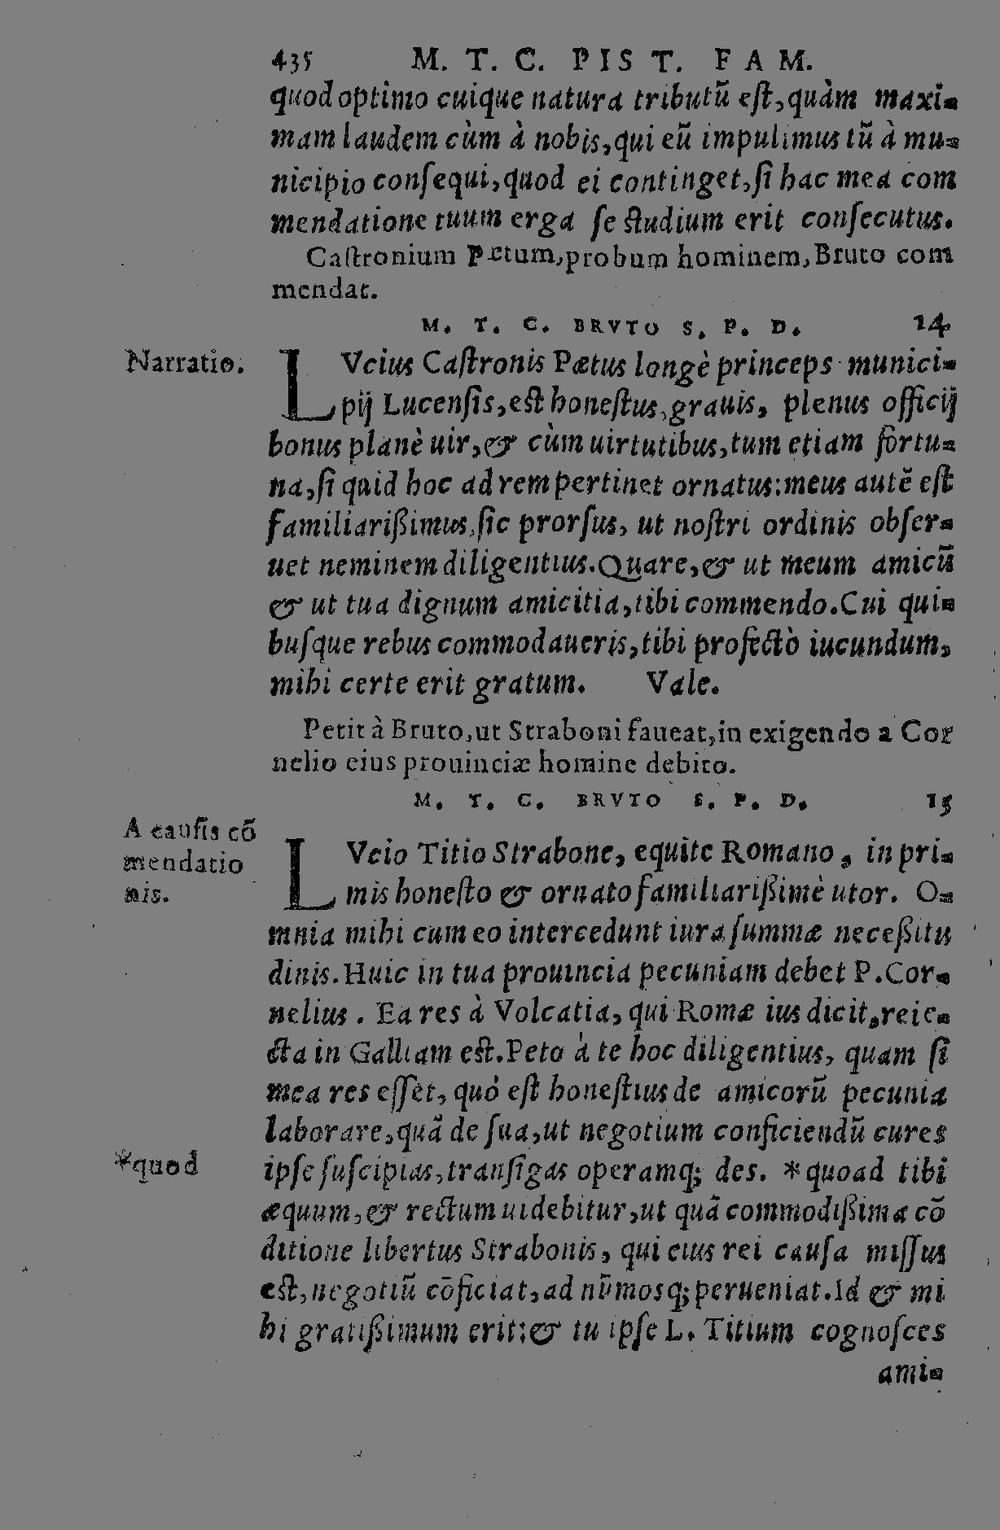 435 M. T. C. PIST. FAM.
quod optimo cuique natura tributū est, quàm maxi-
mam laudem cùm à nobis, qui eū impulimus tū à mu-
nicipio consequi, quod ei continget, si hac mea com
mendatione tuum erga se studium erit consecutus.
Castronium Pætum, probum hominem, Bruto com
mendat.
M. T. C. BRVTO S. P. D. 14
Narratio.
LVcius Castronis Pætus longè princeps munici-
pij Lucensis, est honestus, grauis, plenus officij
bonus planè uir, & cùm uirtutibus, tum etiam fortu-
na, si quid hoc ad rem pertinet ornatus: meus autē est
familiarißimus, sic prorsus, ut nostri ordinis obser-
uet neminem diligentius. Quare, & ut meum amicū
& ut tua dignum amicitia, tibi commendo. Cui qui-
busque rebus commodaueris, tibi profectò iucundum,
mihi certe erit gratum. Vale.
Petit à Bruto, ut Straboni faueat, in exigendo a Cor
nelio eius prouinciæ homine debito.
M. T. C. BRVTO S. P. D. 15
A causis cō
mendatio
nis.
LVcio Titio Strabone, equite Romano, in pri-
mis honesto & ornato familiarißimè utor. O-
mnia mihi cum eo intercedunt iura summæ neceßitu
dinis. Huic in tua prouincia pecuniam debet P. Cor-
nelius. Ea res à Volcatia, qui Romæ ius dicit, reie-
cta in Galliam est. Peto à te hoc diligentius, quam si
mea res esset, quò est honestius de amicorū pecunia
laborare, quā de sua, ut negotium conficiendū cures
*quod
ipse suscipias, transigas operamq; des. *quoad tibi
æquum, & rectum uidebitur, ut quā commodißima cō
ditione libertus Strabonis, qui eius rei causa missus
est, negotiū cōficiat, ad nūmosq; perueniat. Id & mi
hi gratißimum erit: & tu ipse L. Titium cognosces
ami-